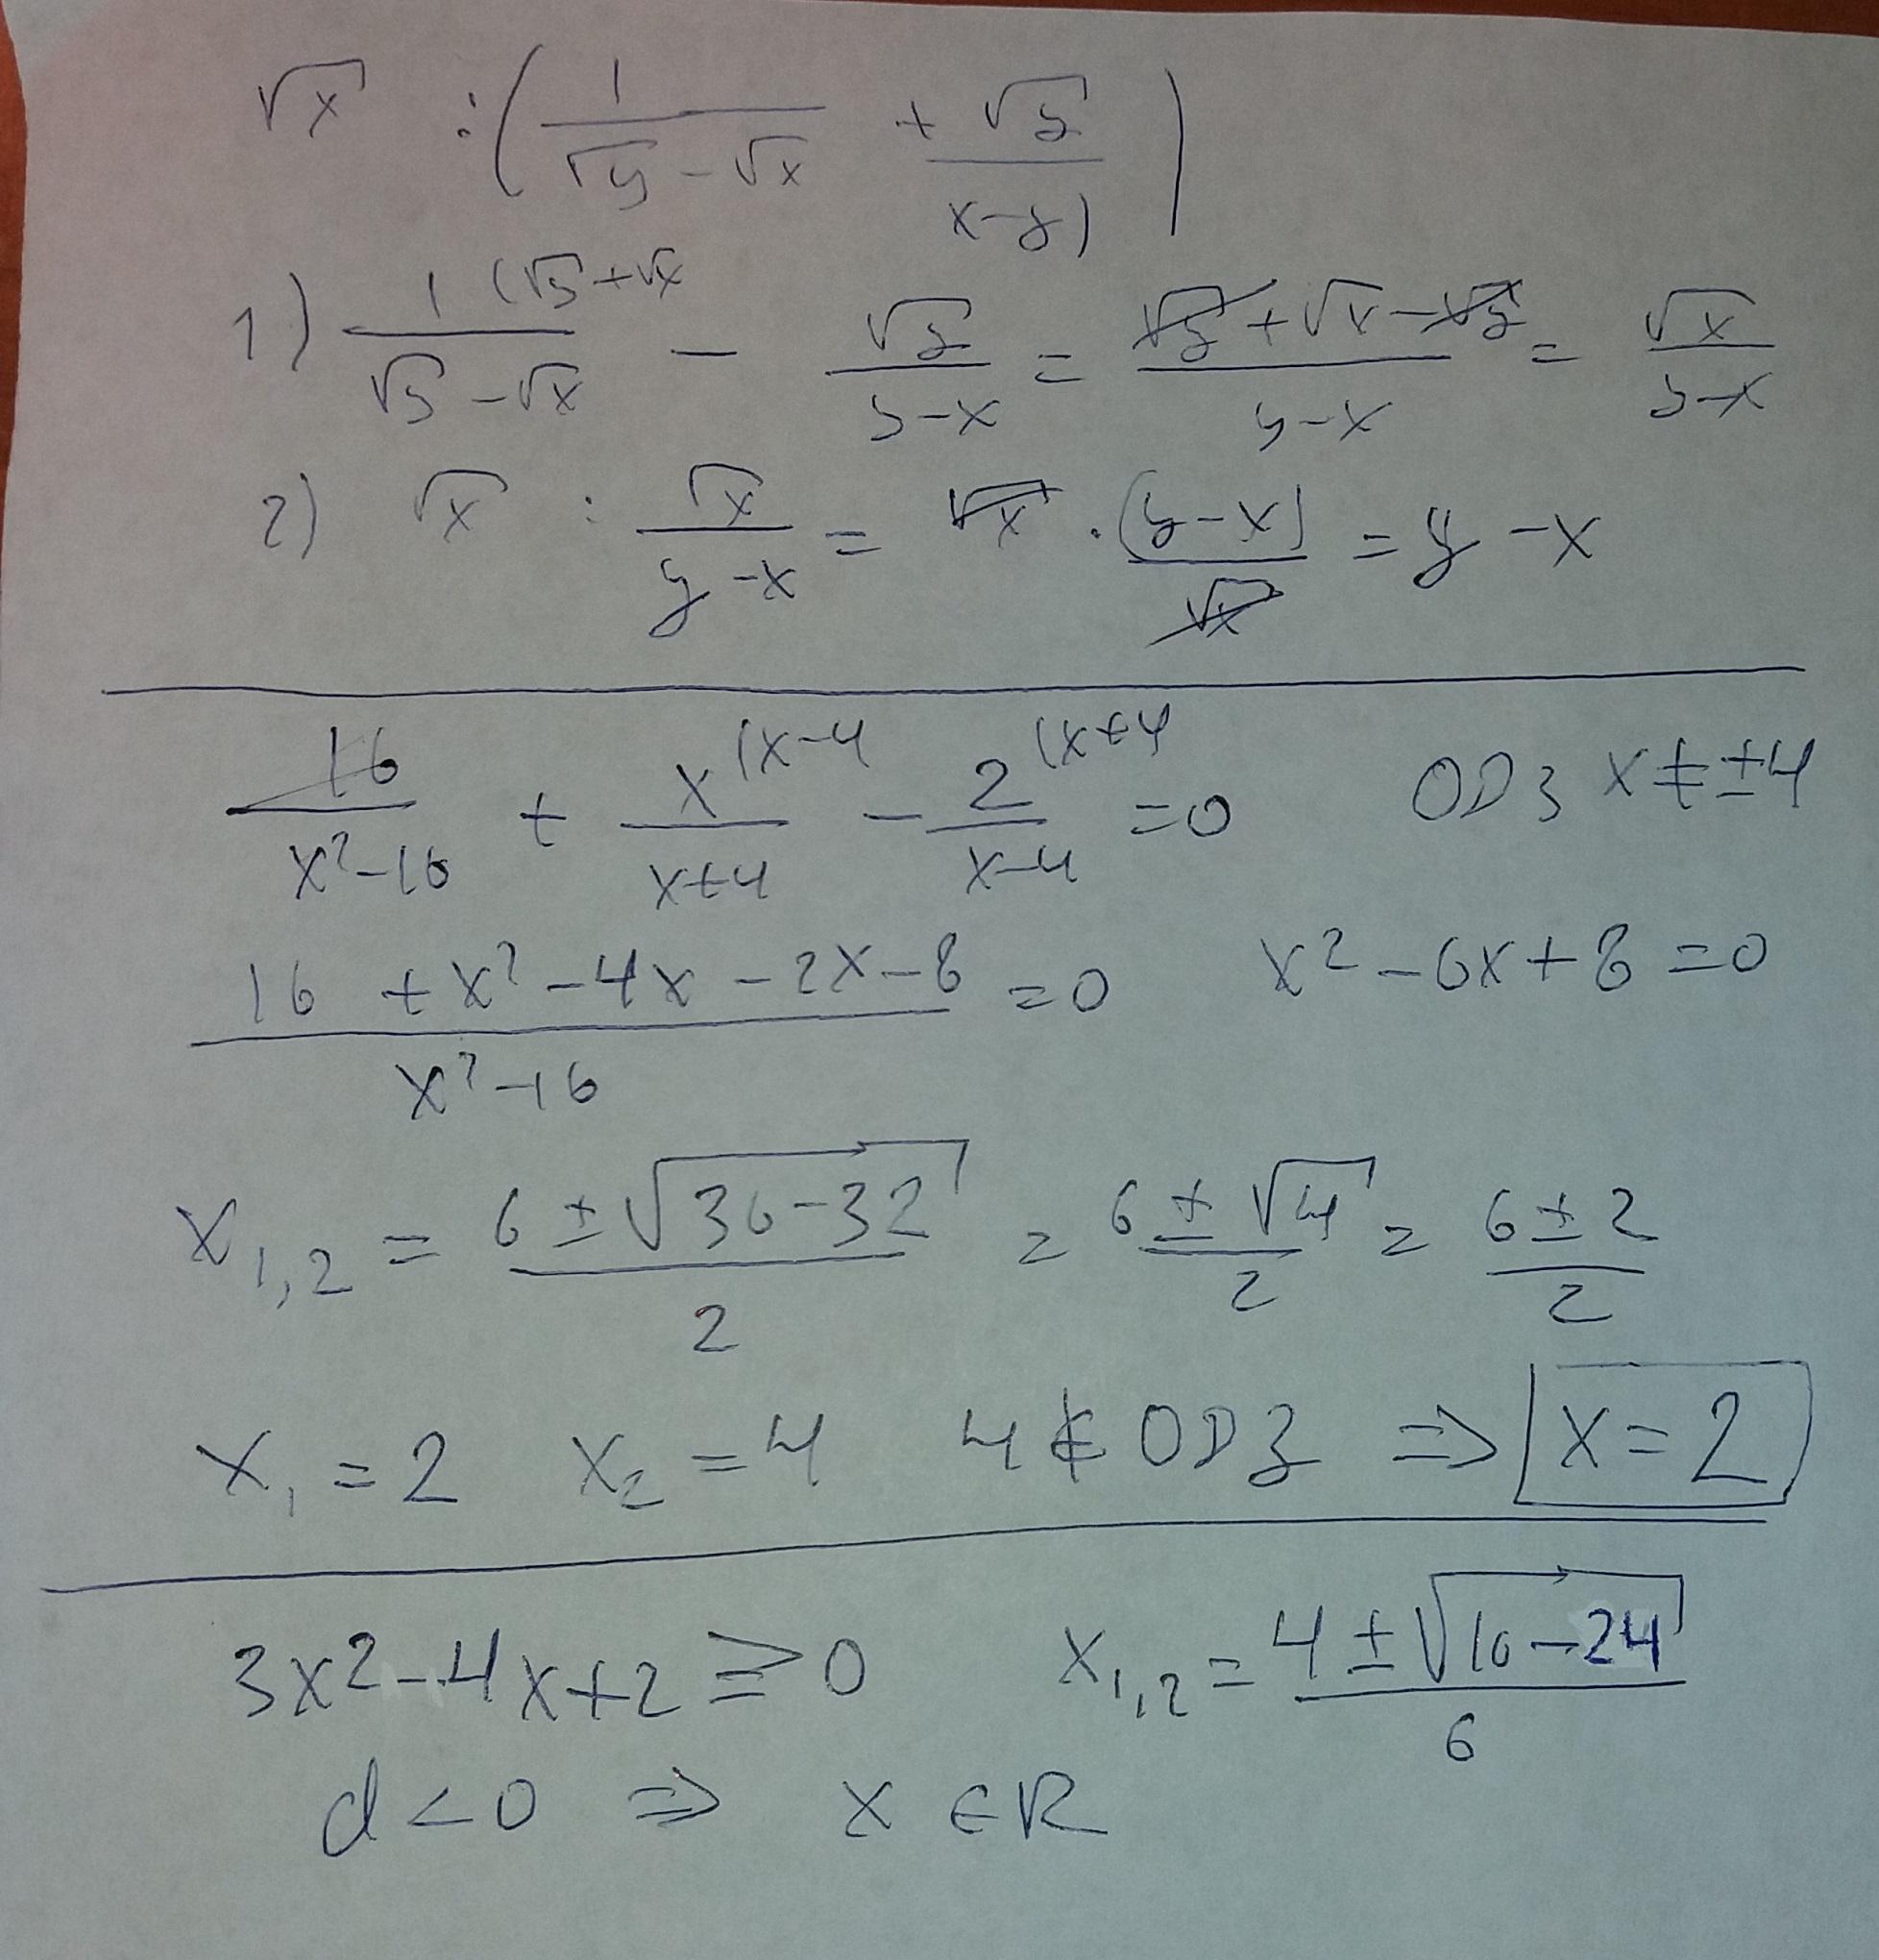 √x : (1/(√y - √x) + √y/(x-y))
1) 1 (√y+√x / (√y - √x) - √y/(y-x) = (√y + √x - √y)/(y-x) = √x/(y-x)
2) √x : √x/(y-x) = √x · (y-x)/√x = y - x
16/(x²-16) + x (x-4 /(x+4) - 2 (x+4 /(x-4) = 0 ODZ x ≠ ±4
(16 + x² - 4x - 2x - 8)/(x²-16) = 0 x² - 6x + 8 = 0
x₁,₂ = (6 ± √(36-32))/2 = (6 ± √4)/2 = (6 ± 2)/2
x₁ = 2 x₂ = 4 4 ∉ ODZ ⇒ x = 2
3x² - 4x + 2 ≥ 0 x₁,₂ = (4 ± √(16-24))/6
d < 0 ⇒ x ∈ R